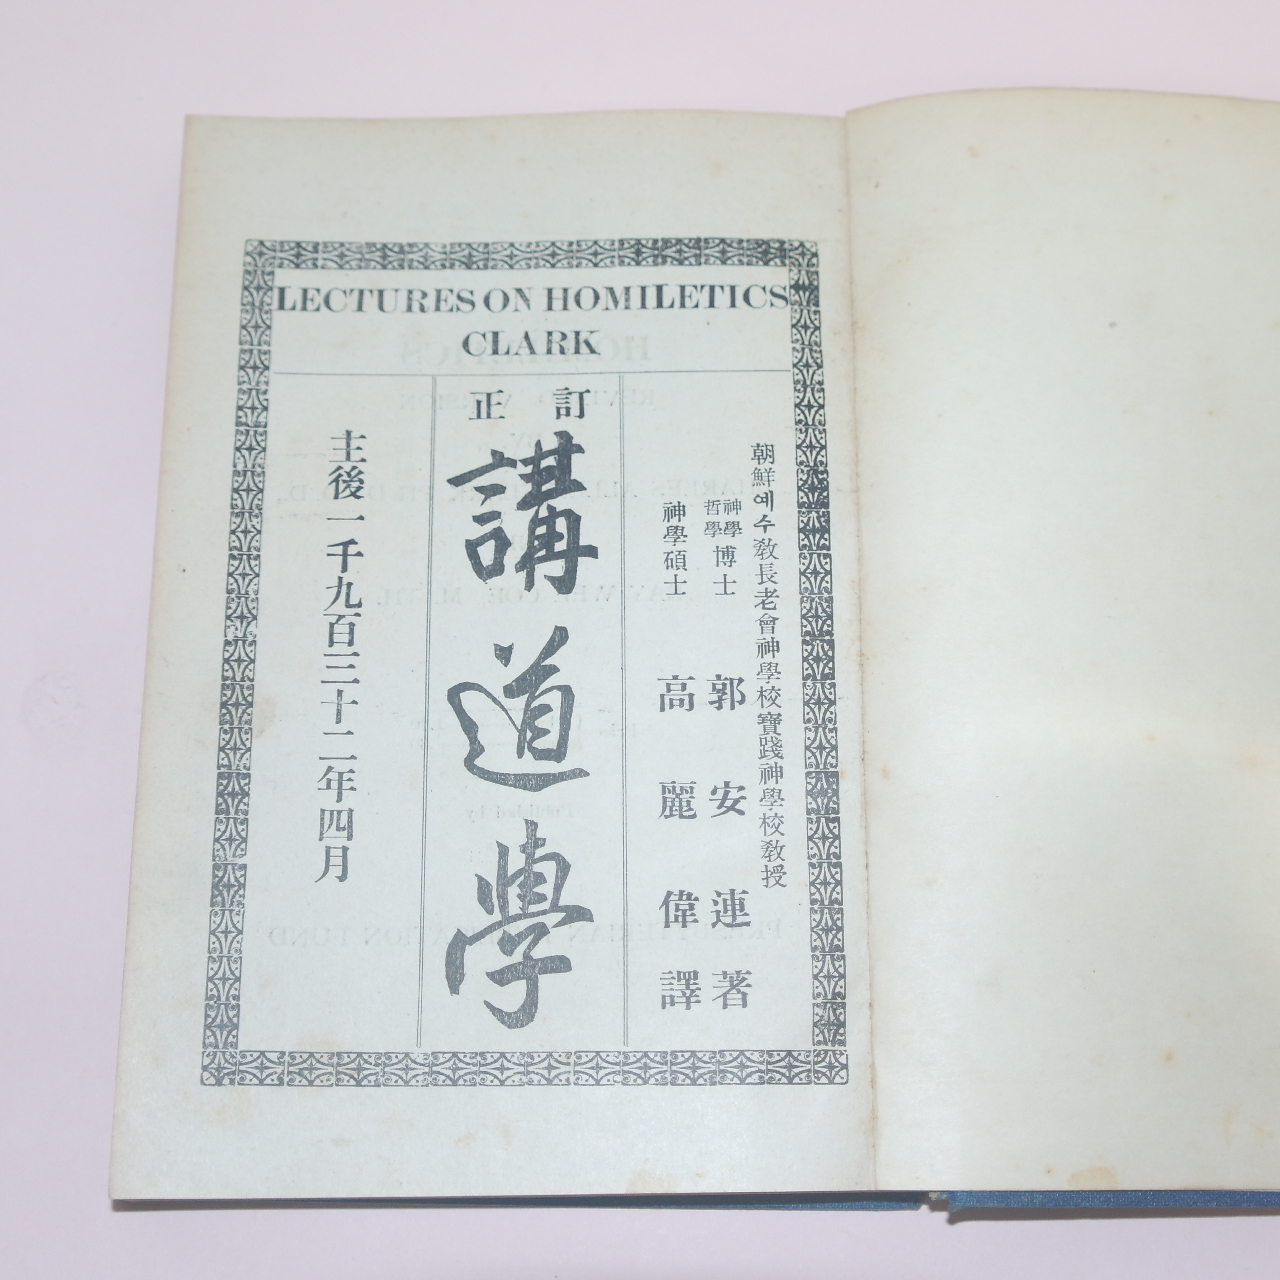 LECTURES ON HOMILETICS
CLARK
朝鮮예수敎長老會神學校實踐神學校敎授
神學
哲學
博士 郭安連 著
神學碩士 高麗偉 譯
訂正
講道學
主後一千九百三十二年四月